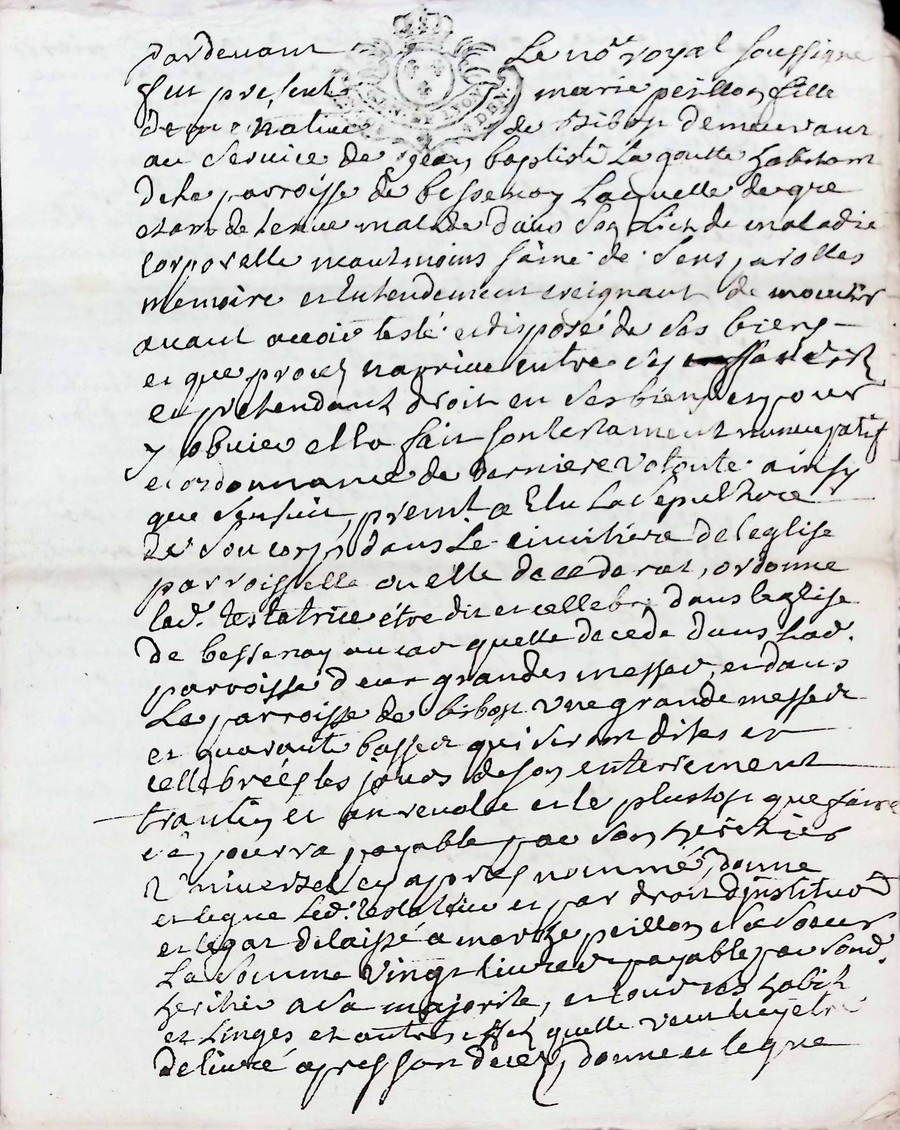 pardevant Le no.re royal soussigne
fut presente marie peillon fille
de bibost demeurant
au service de jean baptiste La goutte habitant
de la parroisse de bessenay Laquelle de gre
etant detenue malade dans son Lict de maladie
corporelle neautmoins saine de sens, parolles
memoire et Entendement creignant de mourir
avant avoir testé et disposé de ses biens
et que procez narrive entre
et pretendant droit en ses biens, et pour
y obvier ella fait son testament nuncupatif
et ordonnance de derniere volonte ainsy
que sensuit, premt a Elu La sepulture
de son corps dans Le cimitiere de leglise
parroissielle ou elle decedera, ordonne
lad. testatrice étre dit et cellebre dans leglise
de bessenay au cas quelle decede dans lad.
parroisse deux grandes messes, et dans
La parroisse de bibost une grande messe
et quarante basses qui seront dites et
cellebrées les jours de son enterrement
trantin et an revolu et le plustost que faire
ce poura, payable par son heritier
Universel cy apres nommé, donne
et legue lad. testatrice et par droit d'institution
et legat delaissé a peillon sa soeur
La somme vingt livres payable par sond.
heritier a sa majorite, et tous ses habits
et Linges et autres effets quelle veut luy etre
delivré apres son decez, donne et legue